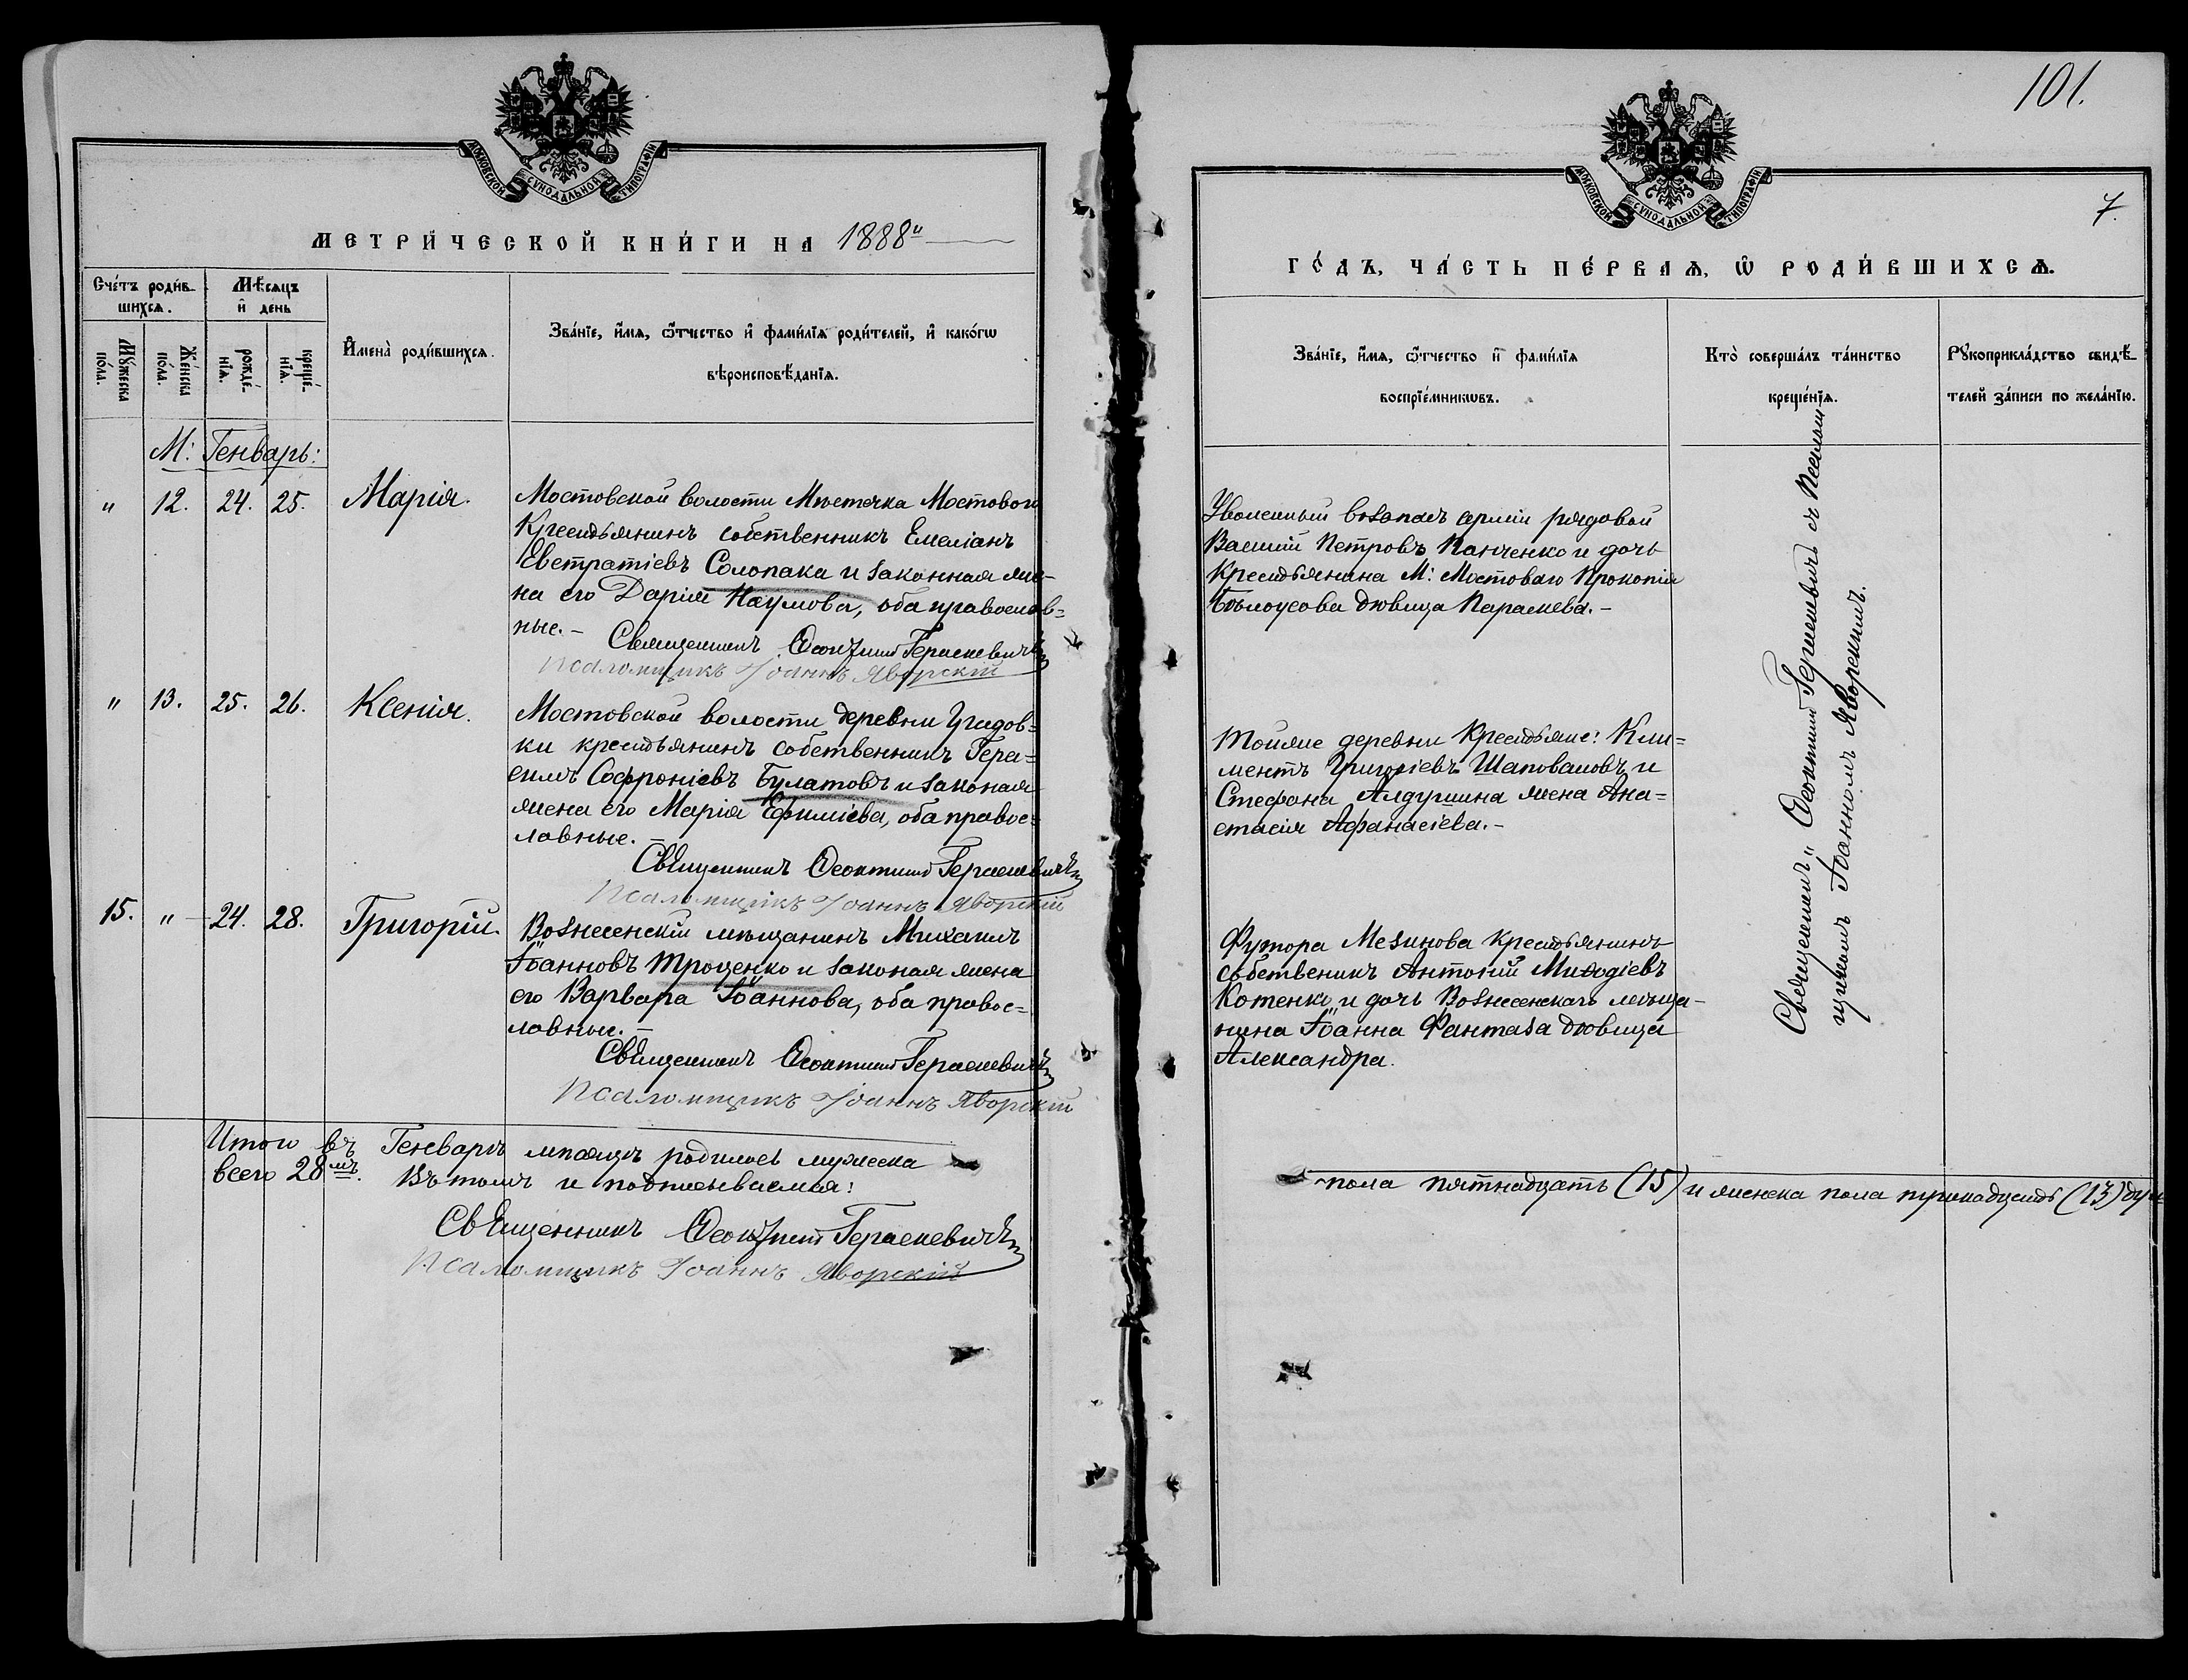 МОСКОВСКОЙ СѴНОДАЛЬНОЙ ТИПОГРАФІИ
МЕТРИ́ЧЕСКОЙ КНИ́ГИ НА 1888й
Сче́тъ роди́в-
шихсѧ.
Мѣ́сѧцъ
и҆ день
Мꙋ́жеска
по́ла.
Же́нска
по́ла.
рожде́-
нїѧ.
креще́-
нїѧ.
И҆мена̀ роди́вшихсѧ.
Зва́нїе, и҆́мѧ, ѻ҆́тчество и҆ фами́лїѧ роди́телей, и҆ како́гѡ
вѣроисповѣ́данїѧ.
М: Генварь:
" 12. 24. 25. Марія.
Мостовской волости Мѣстечка Мостового
Крестьянинъ собственникъ Емеліанъ
Евстратіевъ Солопака и законная же-
на его Дарія Наумова, оба православ=
ные.-
Священникъ Ѳеоктист Гераскевичъ
Псаломщикъ Іоаннъ Яворскій
" 13. 25. 26. Ксенія.
Мостовской волости деревни
ки крестьянинъ собственникъ Гера=
симъ Софроніевъ Булатовъ и законая
жена его Марія Ефиміева, оба правос=
лавные.-
Священникъ Ѳеоктист Гераскевичъ
Псаломщикъ Іоаннъ Яворскій
15. " 24. 28. Григорій.
Вознесенскій мѣщанинъ Михаилъ
Іоанновъ Троценко и законая жена
его Варвара Іоаннова, оба правос=
лавные.-
Священникъ Ѳеоктист Гераскевичъ
Псаломщикъ Іоаннъ Яворскій
Итого въ Генварѣ мѣсяцѣ родилось мужеска
всего 28мъ. Въ томъ и подписываемся:
Священникъ Ѳеоктист Гераскевичъ
Псаломщикъ Іоаннъ Яворскій
101.
МОСКОВСКОЙ СѴНОДАЛЬНОЙ ТИПОГРАФІИ
7.
ГО́ДЪ, ЧА́СТЬ ПЕ́РВАѦ, Ѡ РОДИ́ВШИХСѦ.
Зва́нїе, и҆́мѧ, ѻ҆́тчество и҆ фами́лїѧ
воспрїе́мникѡвъ.
Кто̀ соверша́лъ та́инство
креще́нїѧ.
Рꙋкоприкла́дство свидѣ́-
телей за́писи по жела́нїю.
Уволенный взапасъ арміи рядовой
Василій Петровъ Панченко и дочь
Крестьянина М: Мостоваго Прокопія
Бѣлоусова дѣвица Параскева.-
Тойже деревни Крестьяне: Кли=
ментъ Григоріевъ Шаповаловъ и
Стефана Алдушина жена Ана=
стасія Афанасіева.-
Футора Мезинова Крестьянинъ
собственикъ Антоній Миѳодіевъ
Котенко и дочь Вознесенскаго мѣща-
нина Іоанна Фантаза дѣвица
Александра.
Священникъ Ѳеоктист Гераскевичъ съ Псалом
щикомъ Іоанномъ Яворскимъ.
пола пятнадцать (15) и женска пола тринадцать (13) душ